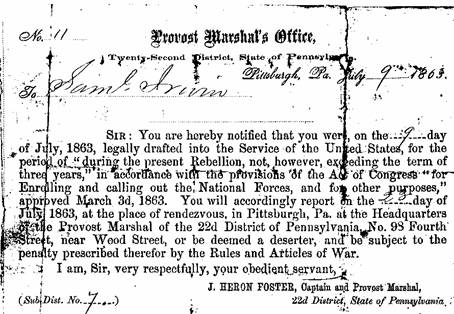 No. 11
Provost Marshal's Office,
Twenty-Second District, State of Pennsylvania
Pittsburgh, Pa. July 9 1863.
To Saml. Irwin
SIR: You are hereby notified that you were, on the 9 day
of July, 1863, legally drafted into the Service of the United States, for the
period of "during the present Rebellion, not, however, exceeding the term of
three years," in accordance with the provisions of the Act of Congress "for
Enrolling and calling out the National Forces, and for other purposes,"
approved March 3d, 1863. You will accordingly report on the 22 day of
July, 1863, at the place of rendezvous, in Pittsburgh, Pa. at the Headquarters
of the Provost Marshal of the 22d District of Pennsylvania, No. 98 Fourth
Street, near Wood Street, or be deemed a deserter, and be subject to the
penalty prescribed therefor by the Rules and Articles of War.
I am, Sir, very respectfully, your obedient servant,
J. HERON FOSTER, Captain and Provost Marshal,
(Sub-Dist. No. 7) 22d District, State of Pennsylvania